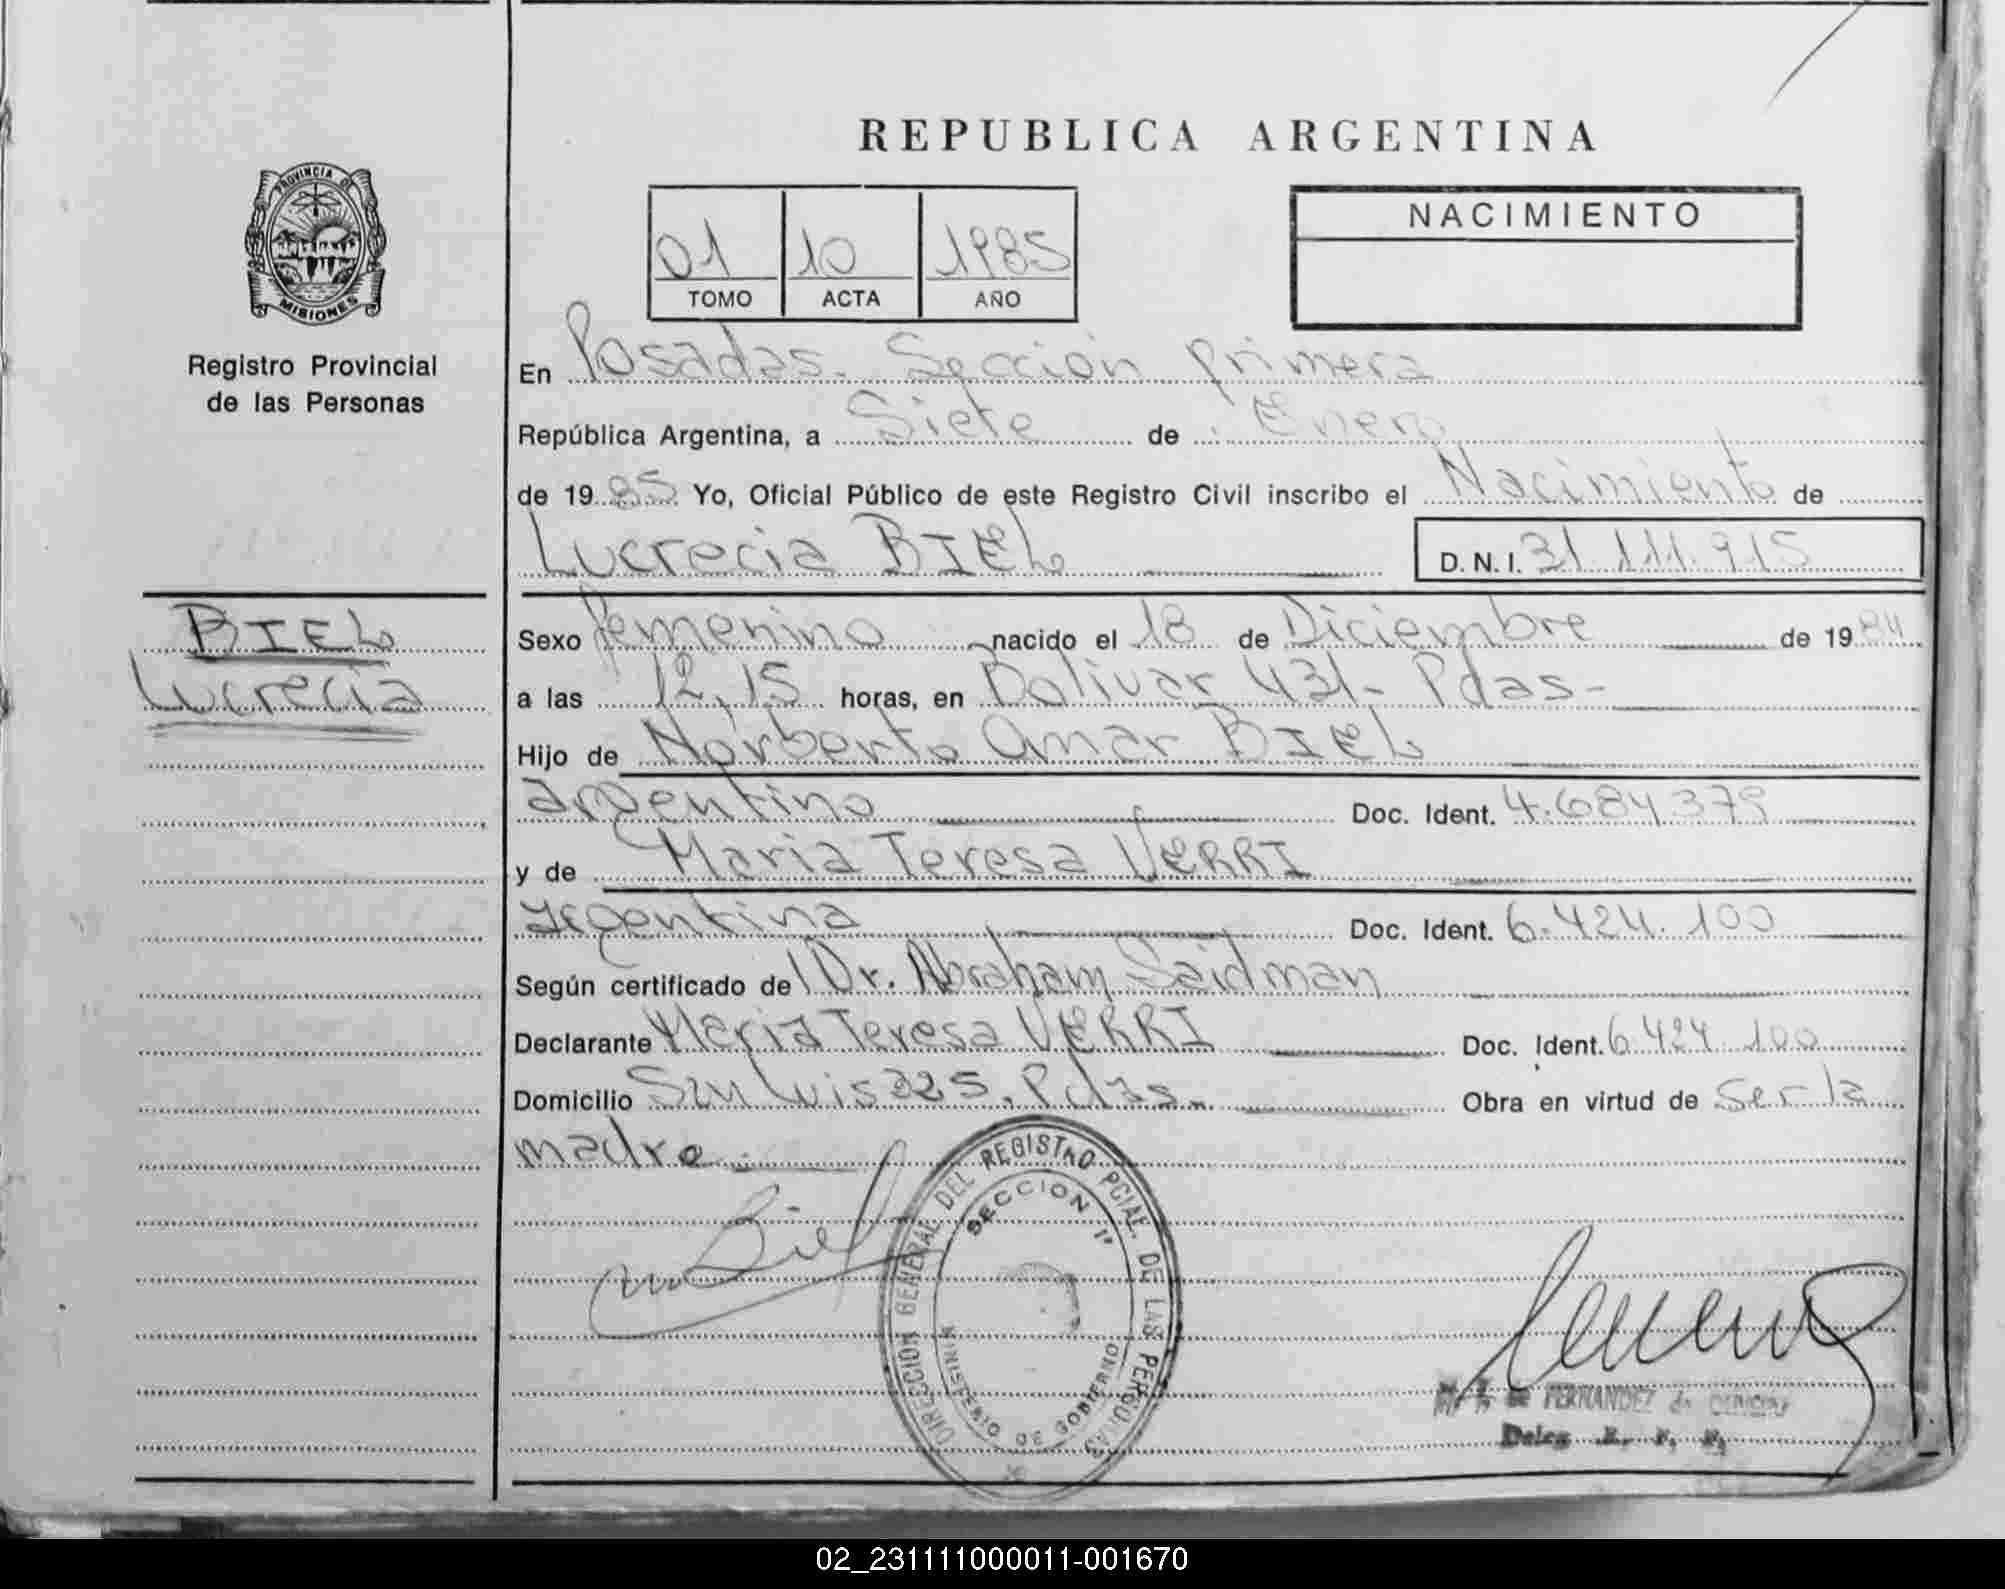 REPUBLICA ARGENTINA
PROVINCIA DE
MISIONES
Registro Provincial
de las Personas
01 10 1985
TOMO ACTA AÑO
NACIMIENTO
En Posadas. Sección primera
República Argentina, a Siete de Enero
de 1985 Yo, Oficial Público de este Registro Civil inscribo el Nacimiento de
Lucrecia BIEL D.N.I. 31.111.915
BIEL
Lucrecia
Sexo femenino nacido el 18 de Diciembre de 1984
a las 12,15 horas, en Bolivar 431- Pdas-
Hijo de Norberto Omar BIEL
argentino Doc. Ident. 4.684.379
y de Maria Teresa VERRI
argentina Doc. Ident. 6.424.100
Según certificado del Dr. Abraham Saidman
Declarante Maria Teresa VERRI Doc. Ident. 6.424.100
Domicilio San Luis 325. Pdas. Obra en virtud de ser la
madre.
Biel
DIRECCION GENERAL DEL REGISTRO PCIAL. DE LAS PERSONAS
SECCION 1ª
MINISTERIO DE GOBIERNO
FERNANDEZ de
02_231111000011-001670